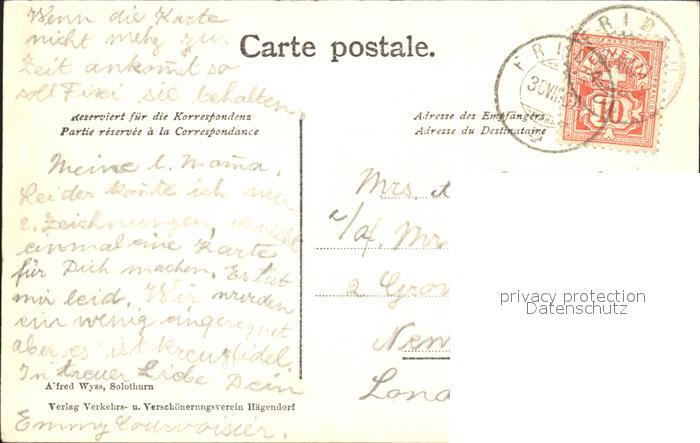 Wenn die Karte
nicht mehr zur
Zeit ankomt so
soll Fixi sie behalten.
Carte postale.
HELVETIA
10
Reserviert für die Korrespondenz
Partie réservée à la Correspondance
Adresse des Empfängers
Adresse du Destinataire
Meine l. Mama,
Leider konte ich nur
2 Zeichnungen, u nicht
einmal eine Karte
für Dich machen. Es tut
mir leid. Wir wurden
ein wenig eingeregnet
aber es ist kreuzfidel.
In treuer Liebe Dein
Emmy Courvoisier.
Mrs.
c/of. Mr
2 Grov
New
Lond
privacy protection
Datenschutz
Alfred Wyss, Solothurn
Verlag Verkehrs- u. Verschönerungsverein Hägendorf